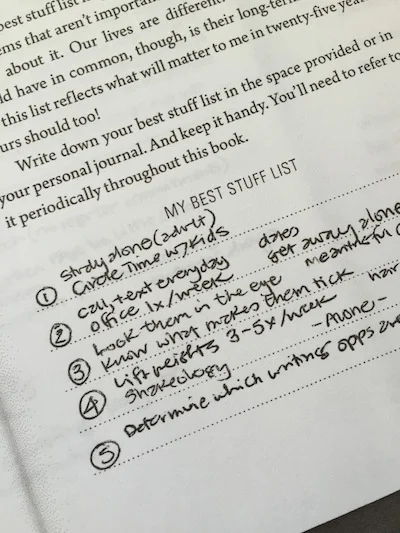 best stuff list
ems that aren't importan
about it. Our lives are different
ld have in common, though, is their long-ter
this list reflects what will matter to me in twenty-five yea
urs should too!
Write down your best stuff list in the space provided or in
your personal journal. And keep it handy. You'll need to refer to
it periodically throughout this book.
MY BEST STUFF LIST
Study alone (adult)
① Circle Time w/kids
call + text everyday dates
② office 1x/week get away alone
Look them in the eye meaningful
③ Know what makes them tick
Lift weights 3-5x/week
④ Shakeology -Alone-
⑤ Determine which writing opps are